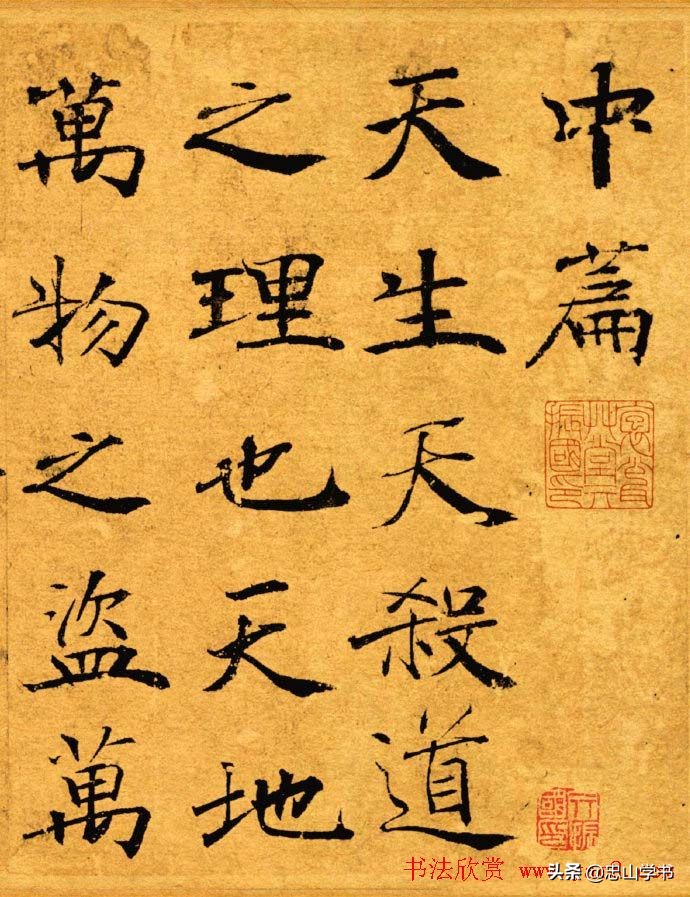 中篇
天生天殺道
之理也天地
萬物之盜萬
书法欣赏 www.
头条 @忠山学书